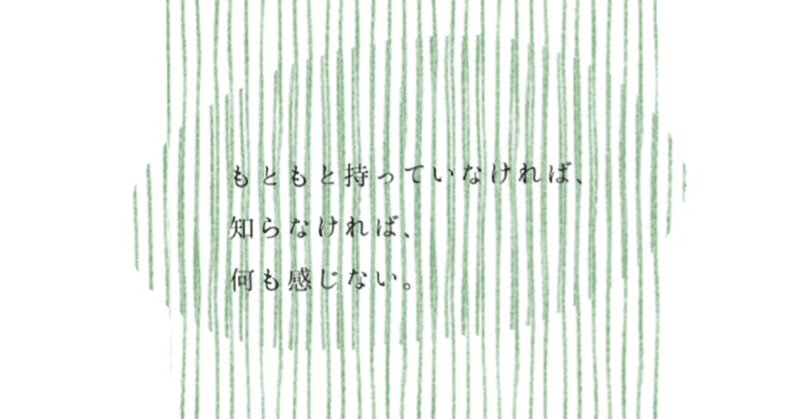 もともと持っていなければ、
知らなければ、
何も感じない。